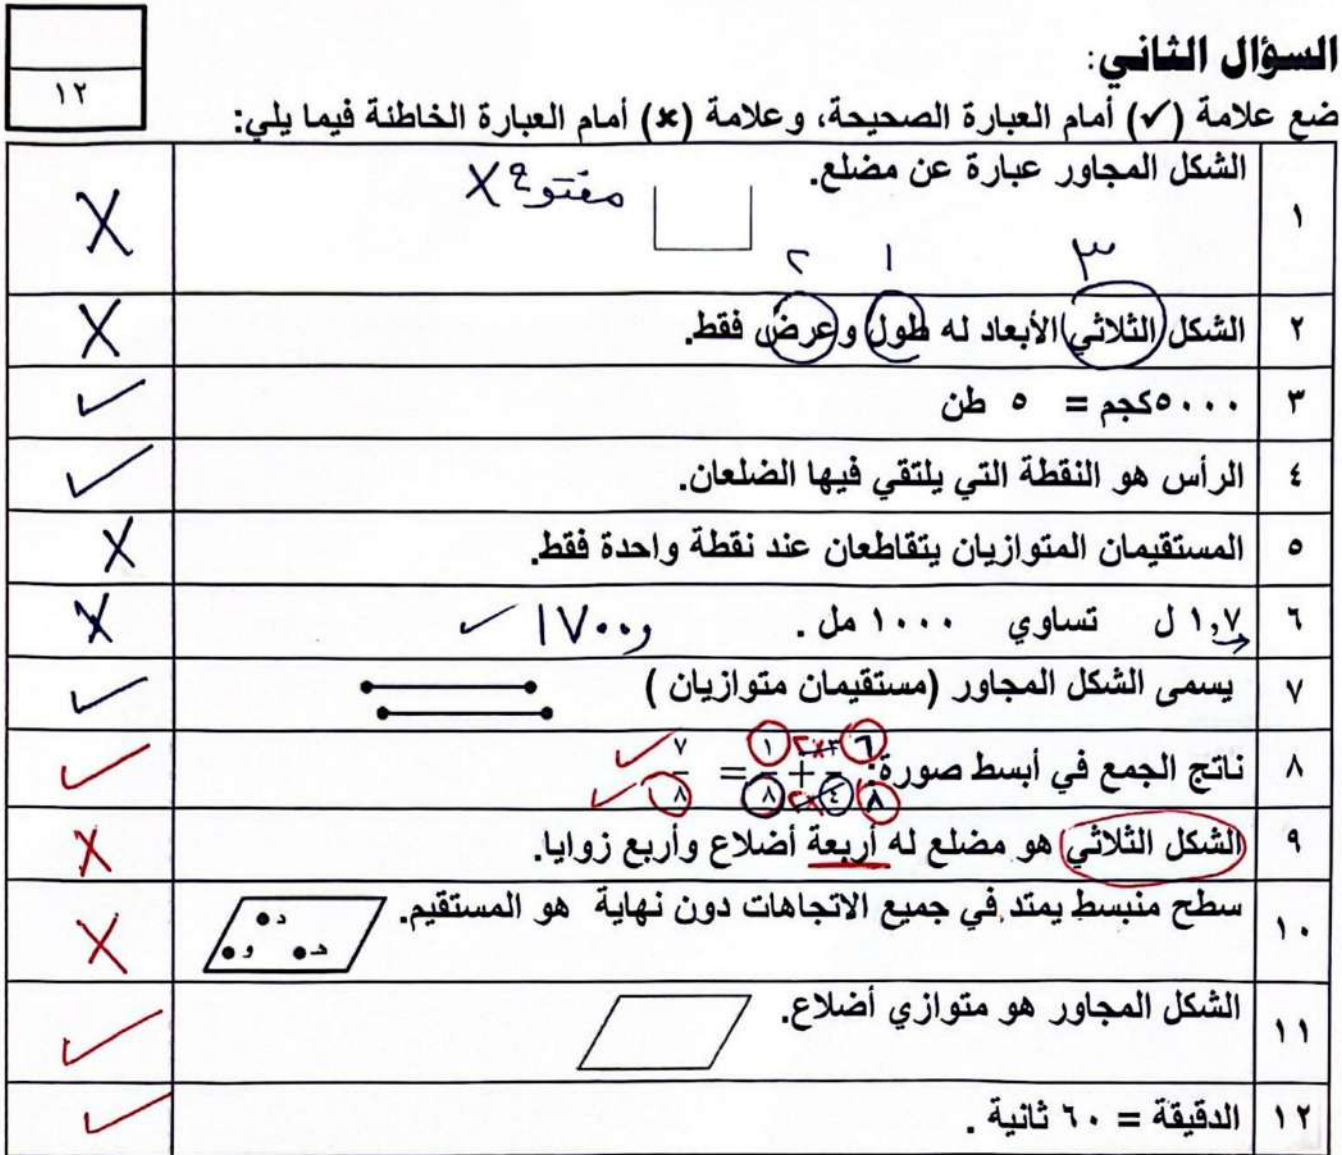 السؤال الثاني:
١٢
ضع علامة (✓) أمام العبارة الصحيحة، وعلامة (×) أمام العبارة الخاطئة فيما يلي:
١ الشكل المجاور عبارة عن مضلع. مفتوح X X
٣ ١ ٢
٢ الشكل الثلاثي الأبعاد له طول وعرض فقط. X
٣ ٥٠٠٠كجم = ٥ طن ✓
٤ الرأس هو النقطة التي يلتقي فيها الضلعان. ✓
٥ المستقيمان المتوازيان يتقاطعان عند نقطة واحدة فقط. X
٦ ١,٧ ل تساوي ١٠٠٠ مل . ١٧٠٠, ✓ X
٧ يسمى الشكل المجاور (مستقيمان متوازيان ) ✓
٦ ٣×٢ ١ ٧ ✓
٨ ناتج الجمع في أبسط صورة: + = ✓
٨ ٤×٢ ٨ ٨ ✓
٩ الشكل الثلاثي هو مضلع له أربعة أضلاع وأربع زوايا. X
١٠ سطح منبسط يمتد في جميع الاتجاهات دون نهاية هو المستقيم. X
د
هـ و
١١ الشكل المجاور هو متوازي أضلاع. ✓
١٢ الدقيقة = ٦٠ ثانية . ✓